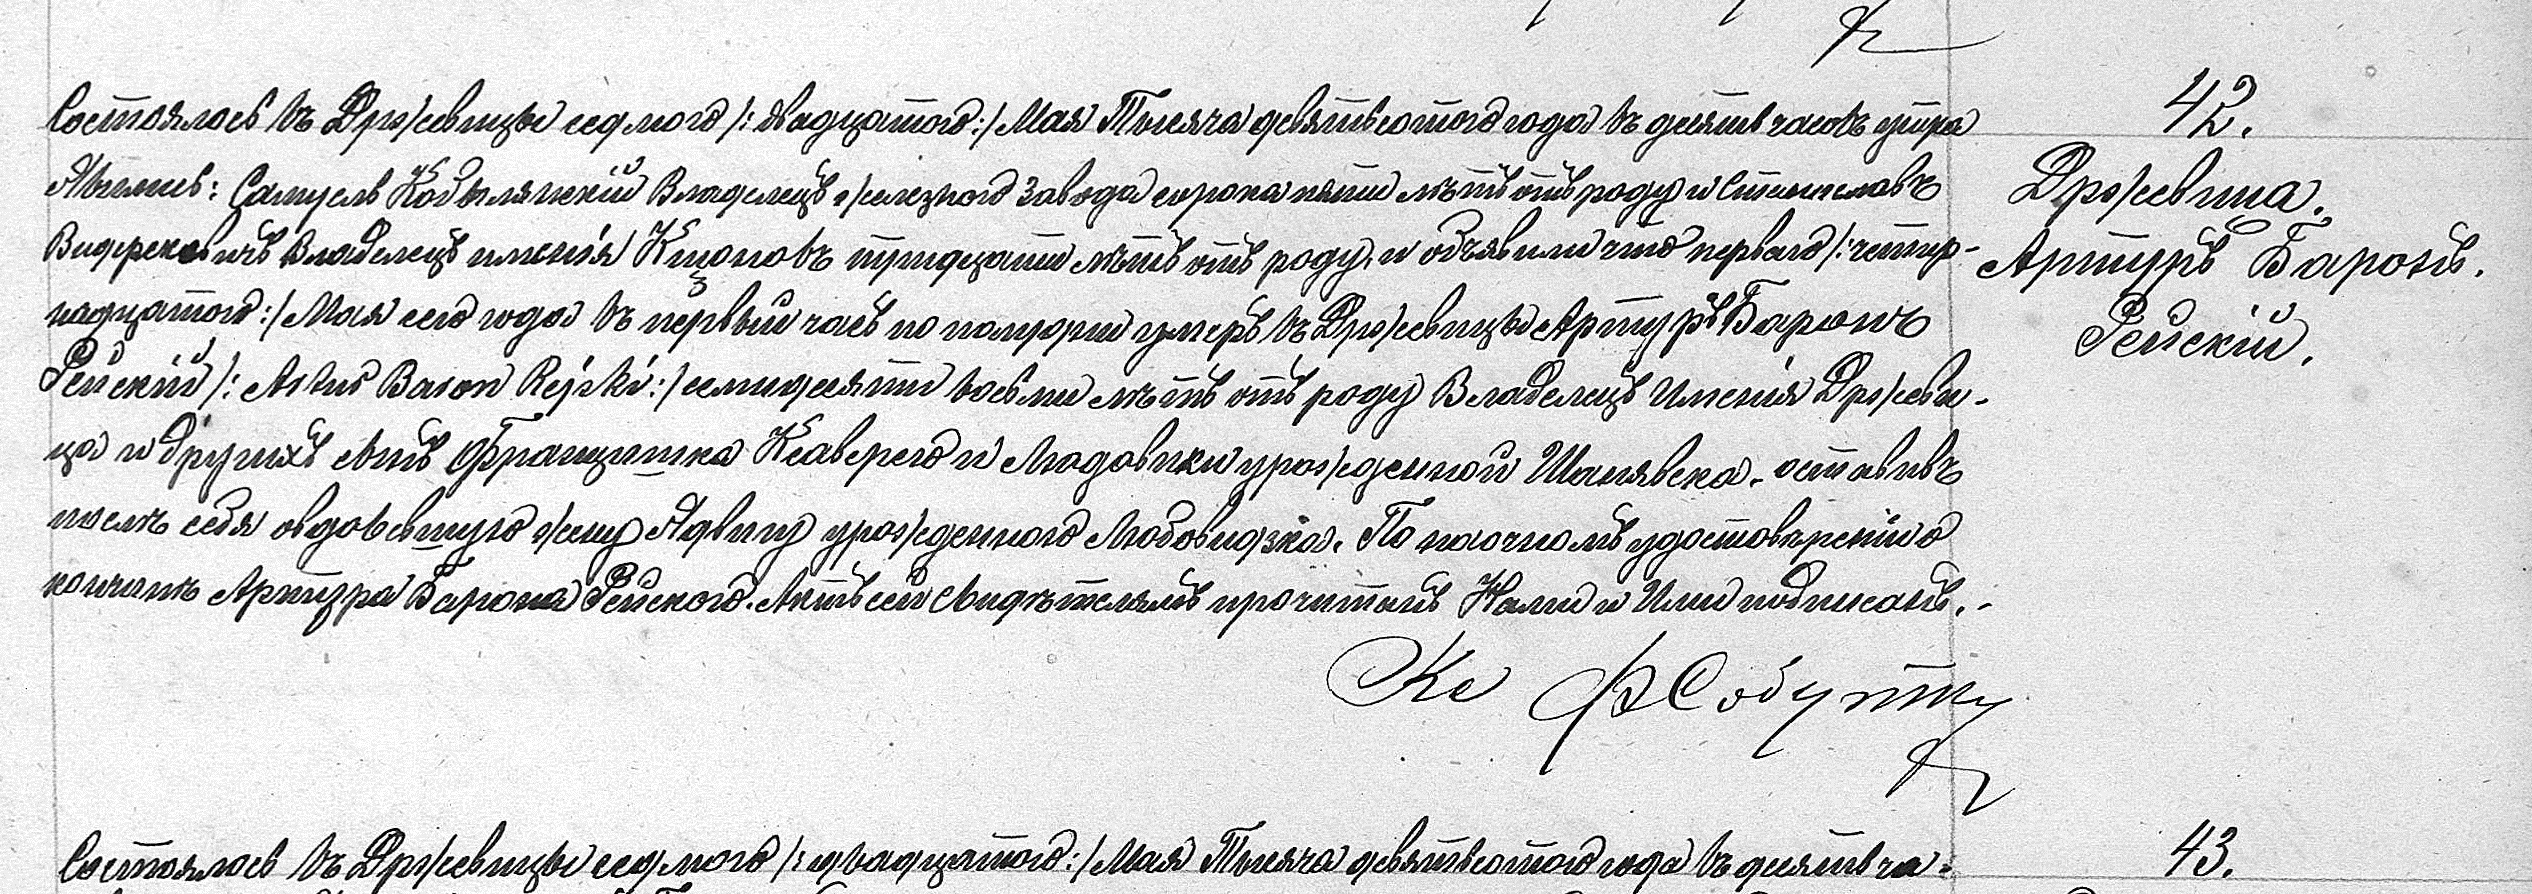 42.
Држевица.
Артуръ Баронъ.
Рейскій.
Состоялось въ Држевицѣ седмого /: двадцатого :/ Мая Тысяча девятьсотого года въ десять часовъ утра
Явились: Самуель Кобылянскій Владелецъ железного завода сорока пяти лѣтъ отъ роду и Станиславъ
владелецъ имѣнія тридцати лѣтъ отъ роду, и объявили что первого /: четыр-
надцатого :/ Мая сего года въ первый часъ по полудни умеръ въ Држевицѣ Артуръ Баронъ
Рейскій /: Artur Baron Rejski :/ семидесяти восьми лѣтъ отъ роду Владелецъ Имѣнія Држеви-
ца и другихъ сынъ Францишка Ксаверего и Людовики урожденной Шанявска. оставивъ
послѣ себя овдовѣвшую жену Ядвигу урожденного Любовидзка. По наочномъ удостовѣреніи о
кончинѣ Артура Барона Рейского. Актъ сей свидѣтелямъ прочитанъ Нами и Ими подписанъ.-
Кс Ф Собутку
43.
Состоялось въ Држевицѣ седмого /: двадцатого :/ Мая Тысяча девятьсотого года въ десять ча-